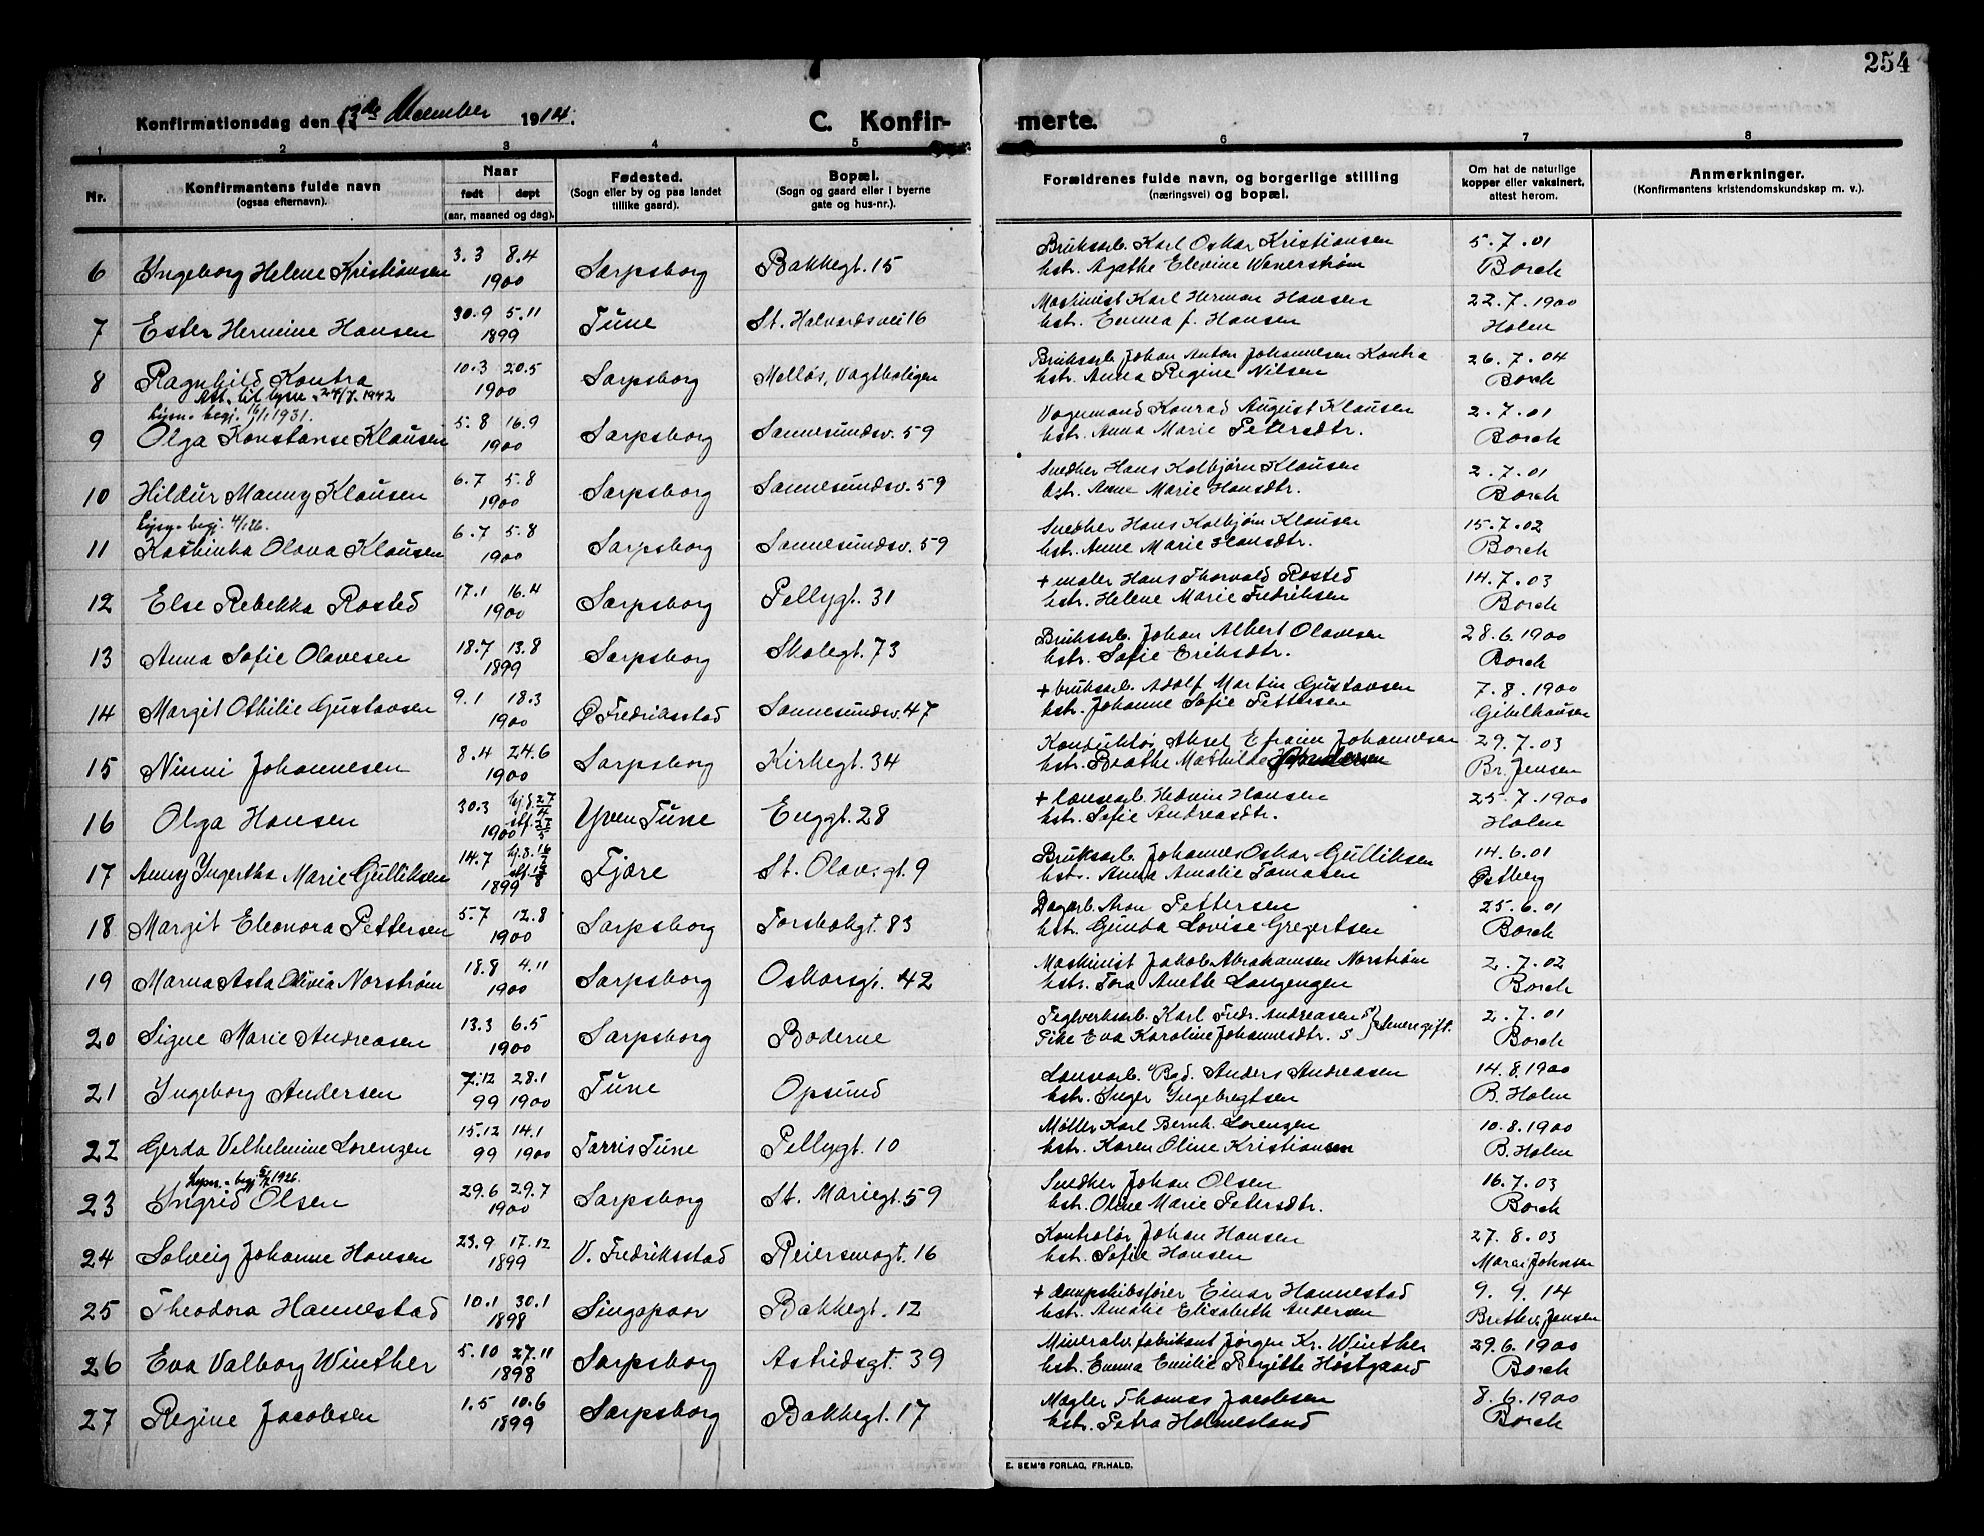 254
Konfirmationsdag den 13de December 1914.
C. Konfirmerte.
1 2 3 4 5 6 7 8
Nr.
Konfirmantens fulde navn
(ogsaa efternavn).
Naar
født døpt
(aar, maaned og dag).
Fødested.
(Sogn eller by og paa landet
tillike gaard).
Bopæl.
(Sogn og gaard eller i byerne
gate og hus-nr.).
Forældrenes fulde navn, og borgerlige stilling
(næringsvei) og bopæl.
Om hat de naturlige
kopper eller vaksinert,
attest herom.
Anmerkninger.
(Konfirmantens kristendomskundskap m. v.).
3.3 8.4 Bruksarb. Karl Oskar Kristiansen 5.7.01
6 Yngeborg Helene Kristiansen 1900 Sarpsborg Bakkegt. 15 hstr. Agathe Elevine Wenerstrøm Borch
30.9 5.11 Maskinist Karl Herman Hansen 22.7.1900
7 Ester Hermine Hansen 1899 Tune St. Halvardsvei 16 hstr. Emma f. Hansen Holm
10.3 20.5 Bruksarb. Johan Anton Johannesen Kontra 26.7.04
8 Ragnhild Kontra 1900 Sarpsborg Melløs, Vagtboligen hstr. Anna Regine Nilsen Borch
Att. til lysn. 24/7.1942
Lysn. begj. 16/1 1931.
5.8 16.9 Vognmand Konrad August Klausen 2.7.01
9 Olga Konstanse Klausen 1900 Sarpsborg Sannesundsv. 59 hstr. Anna Marie Petersdtr. Borch
6.7 5.8 Snedker Hans Kolbjørn Klausen 2.7.01
10 Hildur Manny Klausen 1900 Sarpsborg Sannesundsv. 59 hstr. Anne Marie Hansdtr. Borch
Lysn. begj. 4/1 26.
6.7 5.8 Snedker Hans Kolbjørn Klausen 15.7.02
11 Kathinka Olava Klausen 1900 Sarpsborg Sannesundsv. 59 hstr. Anne Marie Hansdtr. Borch
17.1 16.4 + maler Hans Thorvald Rosted 14.7.03
12 Else Rebekka Rosted 1900 Sarpsborg Pellygt. 31 hstr. Helene Marie Fredriksen Borch
18.7 13.8 Bruksarb. Johan Albert Olavesen 28.6.1900
13 Anna Sofie Olavesen 1899 Sarpsborg Skolegt. 73 hstr. Sofie Eriksdtr. Borch
9.1 18.3 + bruksarb. Adolf Martin Gustavsen 7.8.1900
14 Margit Othilie Gustavsen 1900 Ø Fredriksstad Sannesundsv. 47 hstr. Johanne Sofie Pettersen Gibelhausen
8.4 24.6 Konduktør Aksel Efraim Johannesen 29.7.03
15 Ninni Johannesen 1900 Sarpsborg Kirkegt. 34 hstr. Beathe Mathilde Br. Jensen
30.3 hj.d. 27/4 + lænsearb. Hedvin Hansen 25.7.1900
16 Olga Hansen 1900 stf. 27/5 Yven Tune Enggt. 28 hstr. Sofie Andreasdtr. Holm
14.7 Bruksarb. Johannes Oskar Gulliksen 14.6.01
17 Anny Yngertha Marie Gulliksen 1899 Fjære St. Olavsgt. 9 hstr. Anna Amalie Tomasen Østberg
5.7 12.8 Dagarb. Aron Pettersen 25.6.01
18 Margit Eleonora Pettersen 1900 Sarpsborg Torsbækgt. 83 hstr. Gunda Lovise Gregertsen Borch
18.8 4.11 Maskinist Jakob Abrahamsen Norstrøm 2.7.02
19 Marna Asta Olivia Norstrøm 1900 Sarpsborg Oskarsgt. 42 hstr. Tora Anette Langengen Borch
13.3 6.5 Teglverksarb. Karl Fredr. Andreasen 2.7.01
20 Signe Marie Andreasen 1900 Sarpsborg Boderne Pike Eva Karoline Johannesdtr. senere gift. Borch
7.12 28.1 Lænsearb. Anders Andreasen 14.8.1900
21 Yngeborg Andersen 99 1900 Tune Opsund hstr. Inger Yngebregtsen B. Holm
15.12 14.1 Møller Karl Bernh. Lorenzen 10.8.1900
22 Gerda Vilhelmine Lorenzen 99 1900 Tarris Tune Pellygt. 10 hstr. Karen Oline Kristiansen B. Holm
Lysn. begj. 5/2 1926.
29.6 29.7 Snedker Johan Olsen 16.7.03
23 Ingrid Olsen 1900 Sarpsborg St. Mariegt. 59 hstr. Oline Marie Petersdtr. Borch
23.9 17.12 Kontrolør Johan Hansen 27.8.03
24 Solveig Johanne Hansen 1899 V. Fredriksstad Reiersmogt. 16 hstr. Sofie Hansen Maren Johnsen
10.1 30.1 + dampskibsfører Einar Hannestad 9.9.14
25 Theodora Hannestad 1898 Singapoor Bakkegt. 12 hstr. Amalie Elisabeth Andersen Brettev. Jensen
5.10 27.11 Mineralv. fabrikant Jørgen Kr. Winther 29.6.1900
26 Eva Valborg Winther 1898 Sarpsborg Astridsgt. 39 hstr. Emma Emilie Birgitte Høstgaard Borch
1.5 10.6 Mægler Thomas Jacobsen 8.6.1900
27 Regine Jacobsen 1899 Sarpsborg Bakkegt. 17 hstr. Petra Holmesland Borch
E. SEM'S FORLAG, FR.HALD.